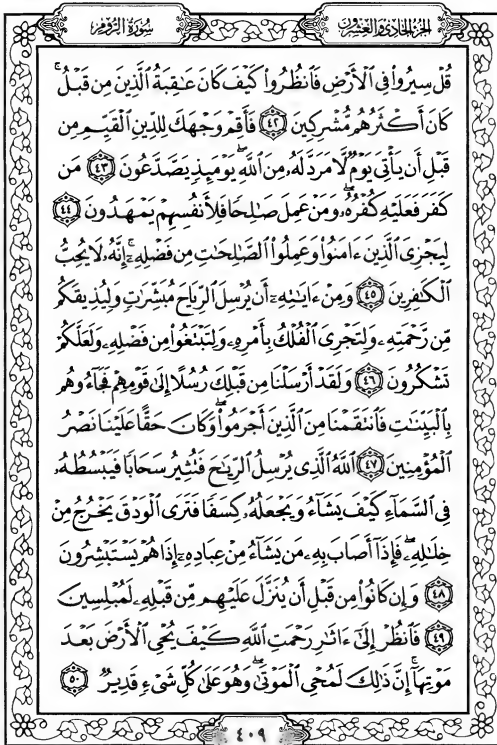 سُورَةُ الرُّومِ
الجُزْءُ الحَادِي وَالعِشْرُونَ
قُلْ سِيرُوا۟ فِي ٱلْأَرْضِ فَٱنظُرُوا۟ كَيْفَ كَانَ عَـٰقِبَةُ ٱلَّذِينَ مِن قَبْلُ ۚ
كَانَ أَكْثَرُهُم مُّشْرِكِينَ ٤٢ فَأَقِمْ وَجْهَكَ لِلدِّينِ ٱلْقَيِّمِ مِن
قَبْلِ أَن يَأْتِيَ يَوْمٌ لَّا مَرَدَّ لَهُۥ مِنَ ٱللَّهِ ۖ يَوْمَئِذٍ يَصَّدَّعُونَ ٤٣ مَن
كَفَرَ فَعَلَيْهِ كُفْرُهُۥ ۖ وَمَنْ عَمِلَ صَـٰلِحًا فَلِأَنفُسِهِمْ يَمْهَدُونَ ٤٤
لِيَجْزِيَ ٱلَّذِينَ ءَامَنُوا۟ وَعَمِلُوا۟ ٱلصَّـٰلِحَـٰتِ مِن فَضْلِهِۦٓ ۚ إِنَّهُۥ لَا يُحِبُّ
ٱلْكَـٰفِرِينَ ٤٥ وَمِنْ ءَايَـٰتِهِۦٓ أَن يُرْسِلَ ٱلرِّيَاحَ مُبَشِّرَٰتٍ وَلِيُذِيقَكُم
مِّن رَّحْمَتِهِۦ وَلِتَجْرِيَ ٱلْفُلْكُ بِأَمْرِهِۦ وَلِتَبْتَغُوا۟ مِن فَضْلِهِۦ وَلَعَلَّكُمْ
تَشْكُرُونَ ٤٦ وَلَقَدْ أَرْسَلْنَا مِن قَبْلِكَ رُسُلًا إِلَىٰ قَوْمِهِمْ فَجَآءُوهُم
بِٱلْبَيِّنَـٰتِ فَٱنتَقَمْنَا مِنَ ٱلَّذِينَ أَجْرَمُوا۟ ۖ وَكَانَ حَقًّا عَلَيْنَا نَصْرُ
ٱلْمُؤْمِنِينَ ٤٧ ٱللَّهُ ٱلَّذِي يُرْسِلُ ٱلرِّيَـٰحَ فَتُثِيرُ سَحَابًا فَيَبْسُطُهُۥ
فِي ٱلسَّمَآءِ كَيْفَ يَشَآءُ وَيَجْعَلُهُۥ كِسَفًا فَتَرَى ٱلْوَدْقَ يَخْرُجُ مِنْ
خِلَـٰلِهِۦ ۖ فَإِذَآ أَصَابَ بِهِۦ مَن يَشَآءُ مِنْ عِبَادِهِۦٓ إِذَا هُمْ يَسْتَبْشِرُونَ
٤٨ وَإِن كَانُوا۟ مِن قَبْلِ أَن يُنَزَّلَ عَلَيْهِم مِّن قَبْلِهِۦ لَمُبْلِسِينَ
٤٩ فَٱنظُرْ إِلَىٰٓ ءَاثَـٰرِ رَحْمَتِ ٱللَّهِ كَيْفَ يُحْيِ ٱلْأَرْضَ بَعْدَ
مَوْتِهَآ ۚ إِنَّ ذَٰلِكَ لَمُحْيِ ٱلْمَوْتَىٰ ۖ وَهُوَ عَلَىٰ كُلِّ شَيْءٍ قَدِيرٌ ٥٠
٤٠٩